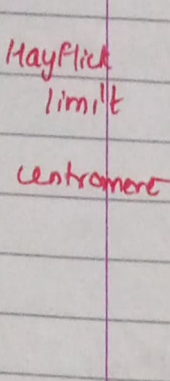 Hayflick
limit
centromere